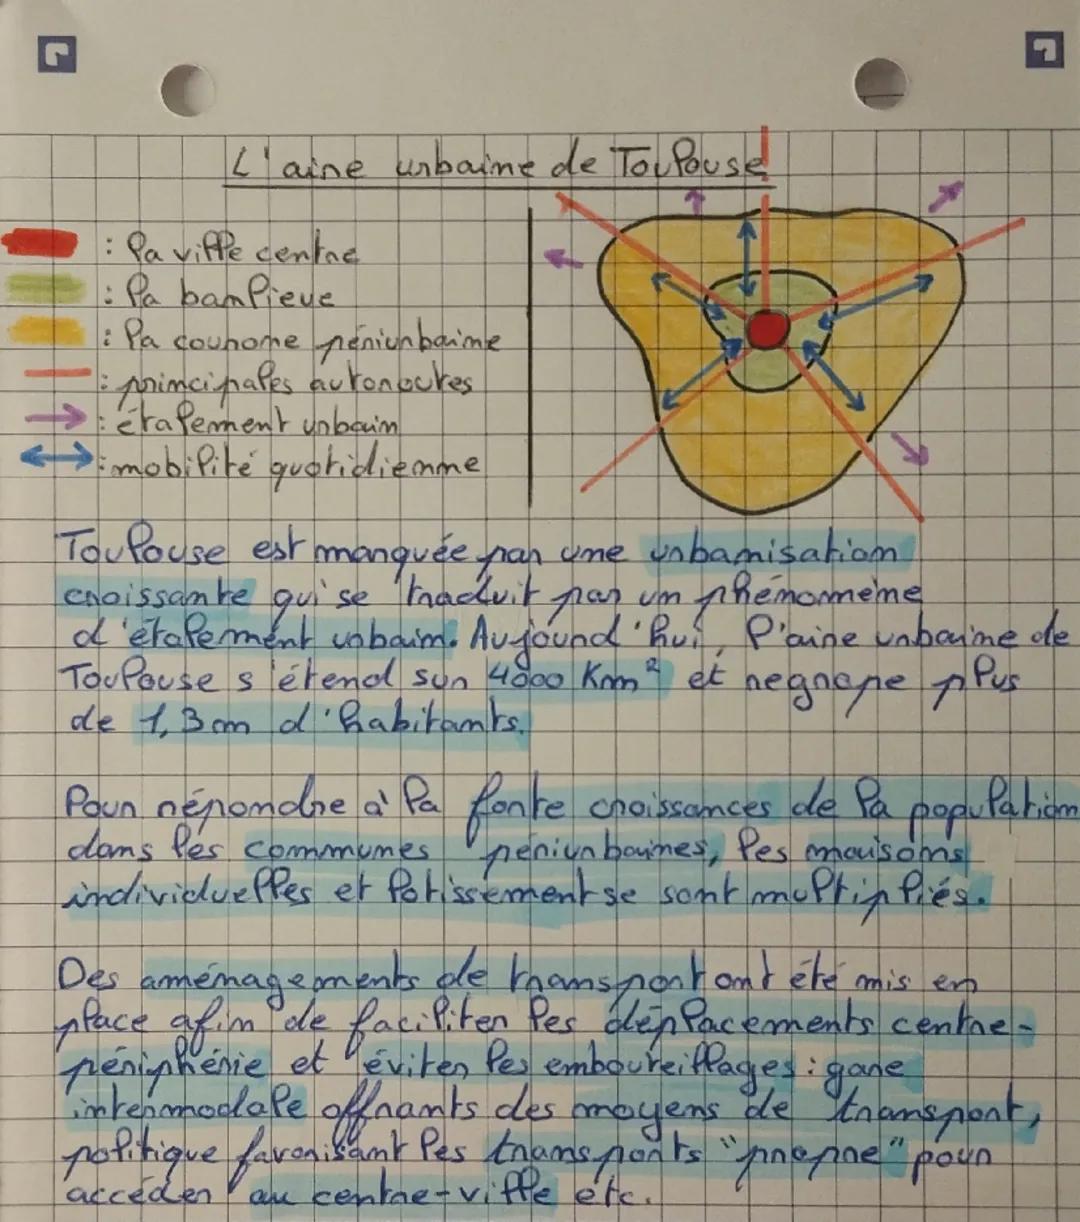 L'aire urbaine de Toulouse
: la ville centre
: la banlieue
: la couronne périurbaine
: principales autoroutes
: étalement urbain
: mobilité quotidienne
Toulouse est marquée par une urbanisation
croissante qui se traduit par un phénomène
d'étalement urbain. Aujourd'hui, l'aire urbaine de
Toulouse s'étend sur 4000 Km² et regrape plus
de 1,3 m d'habitants.
Pour répondre à la forte croissances de la population
dans les communes périurbaines, les maisons
individuelles et lotissement se sont multipliés.
Des aménagements de transport ont été mis en
place afin de faciliter les déplacements centre-
périphérie et éviter les embouteillages : gare
intermodale offrants des moyens de transport,
politique favorisant les transports "propre" pour
accéder au centre-ville etc.